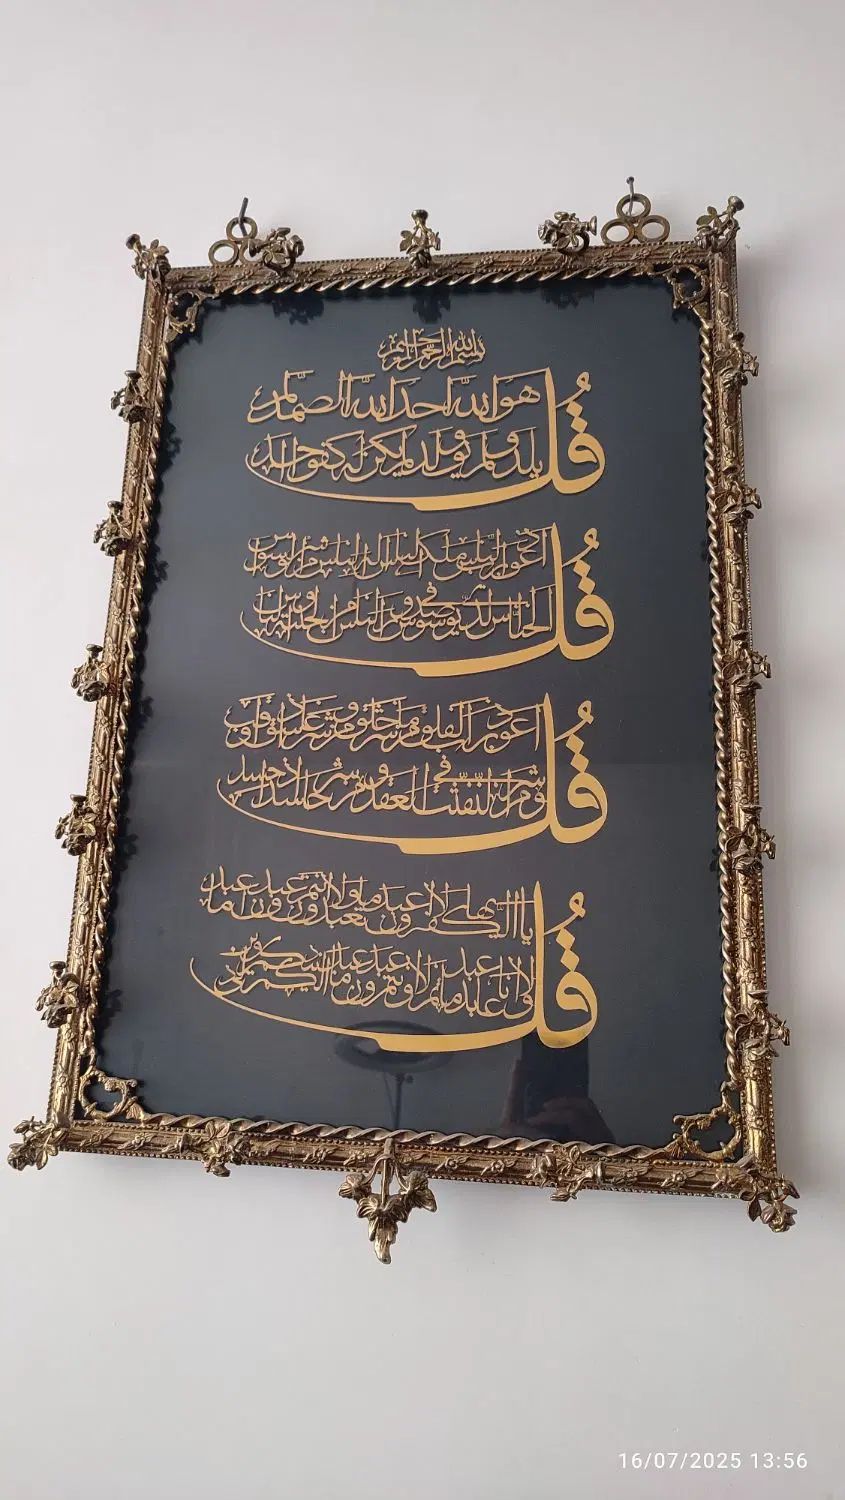 بسم الله الرحمن الرحيم
قل هو الله احد الله الصمد لم
يلد ولم يولد ولم يكن له كفوا احد
قل اعوذ برب الناس ملك الناس اله الناس من شر الوسواس
الخناس الذي يوسوس في صدور الناس من الجنة والناس
قل اعوذ برب الفلق من شر ما خلق ومن شر غاسق اذا وقب
ومن شر النفثت في العقد ومن شر حاسد اذا حسد
قل يا ايها الكفرون لا اعبد ما تعبدون ولا انتم عبدون ما اعبد
ولا انا عابد ما عبدتم ولا انتم عبدون ما اعبد لكم دينكم ولي دين
16/07/2025 13:56